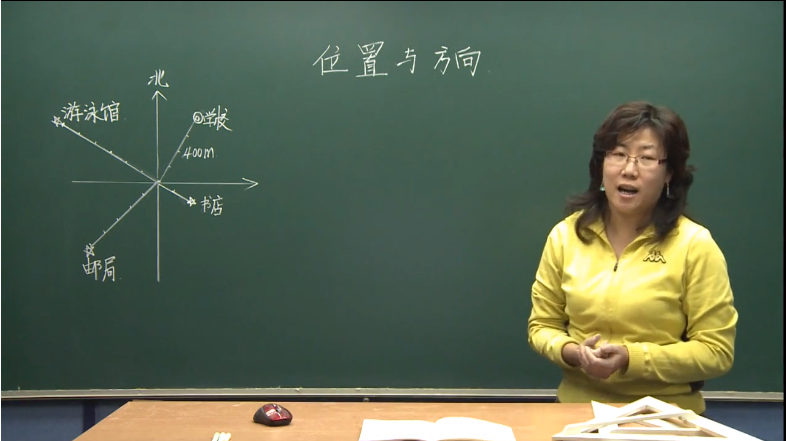 位置与方向
北
游泳馆
学校
400m
书店
邮局